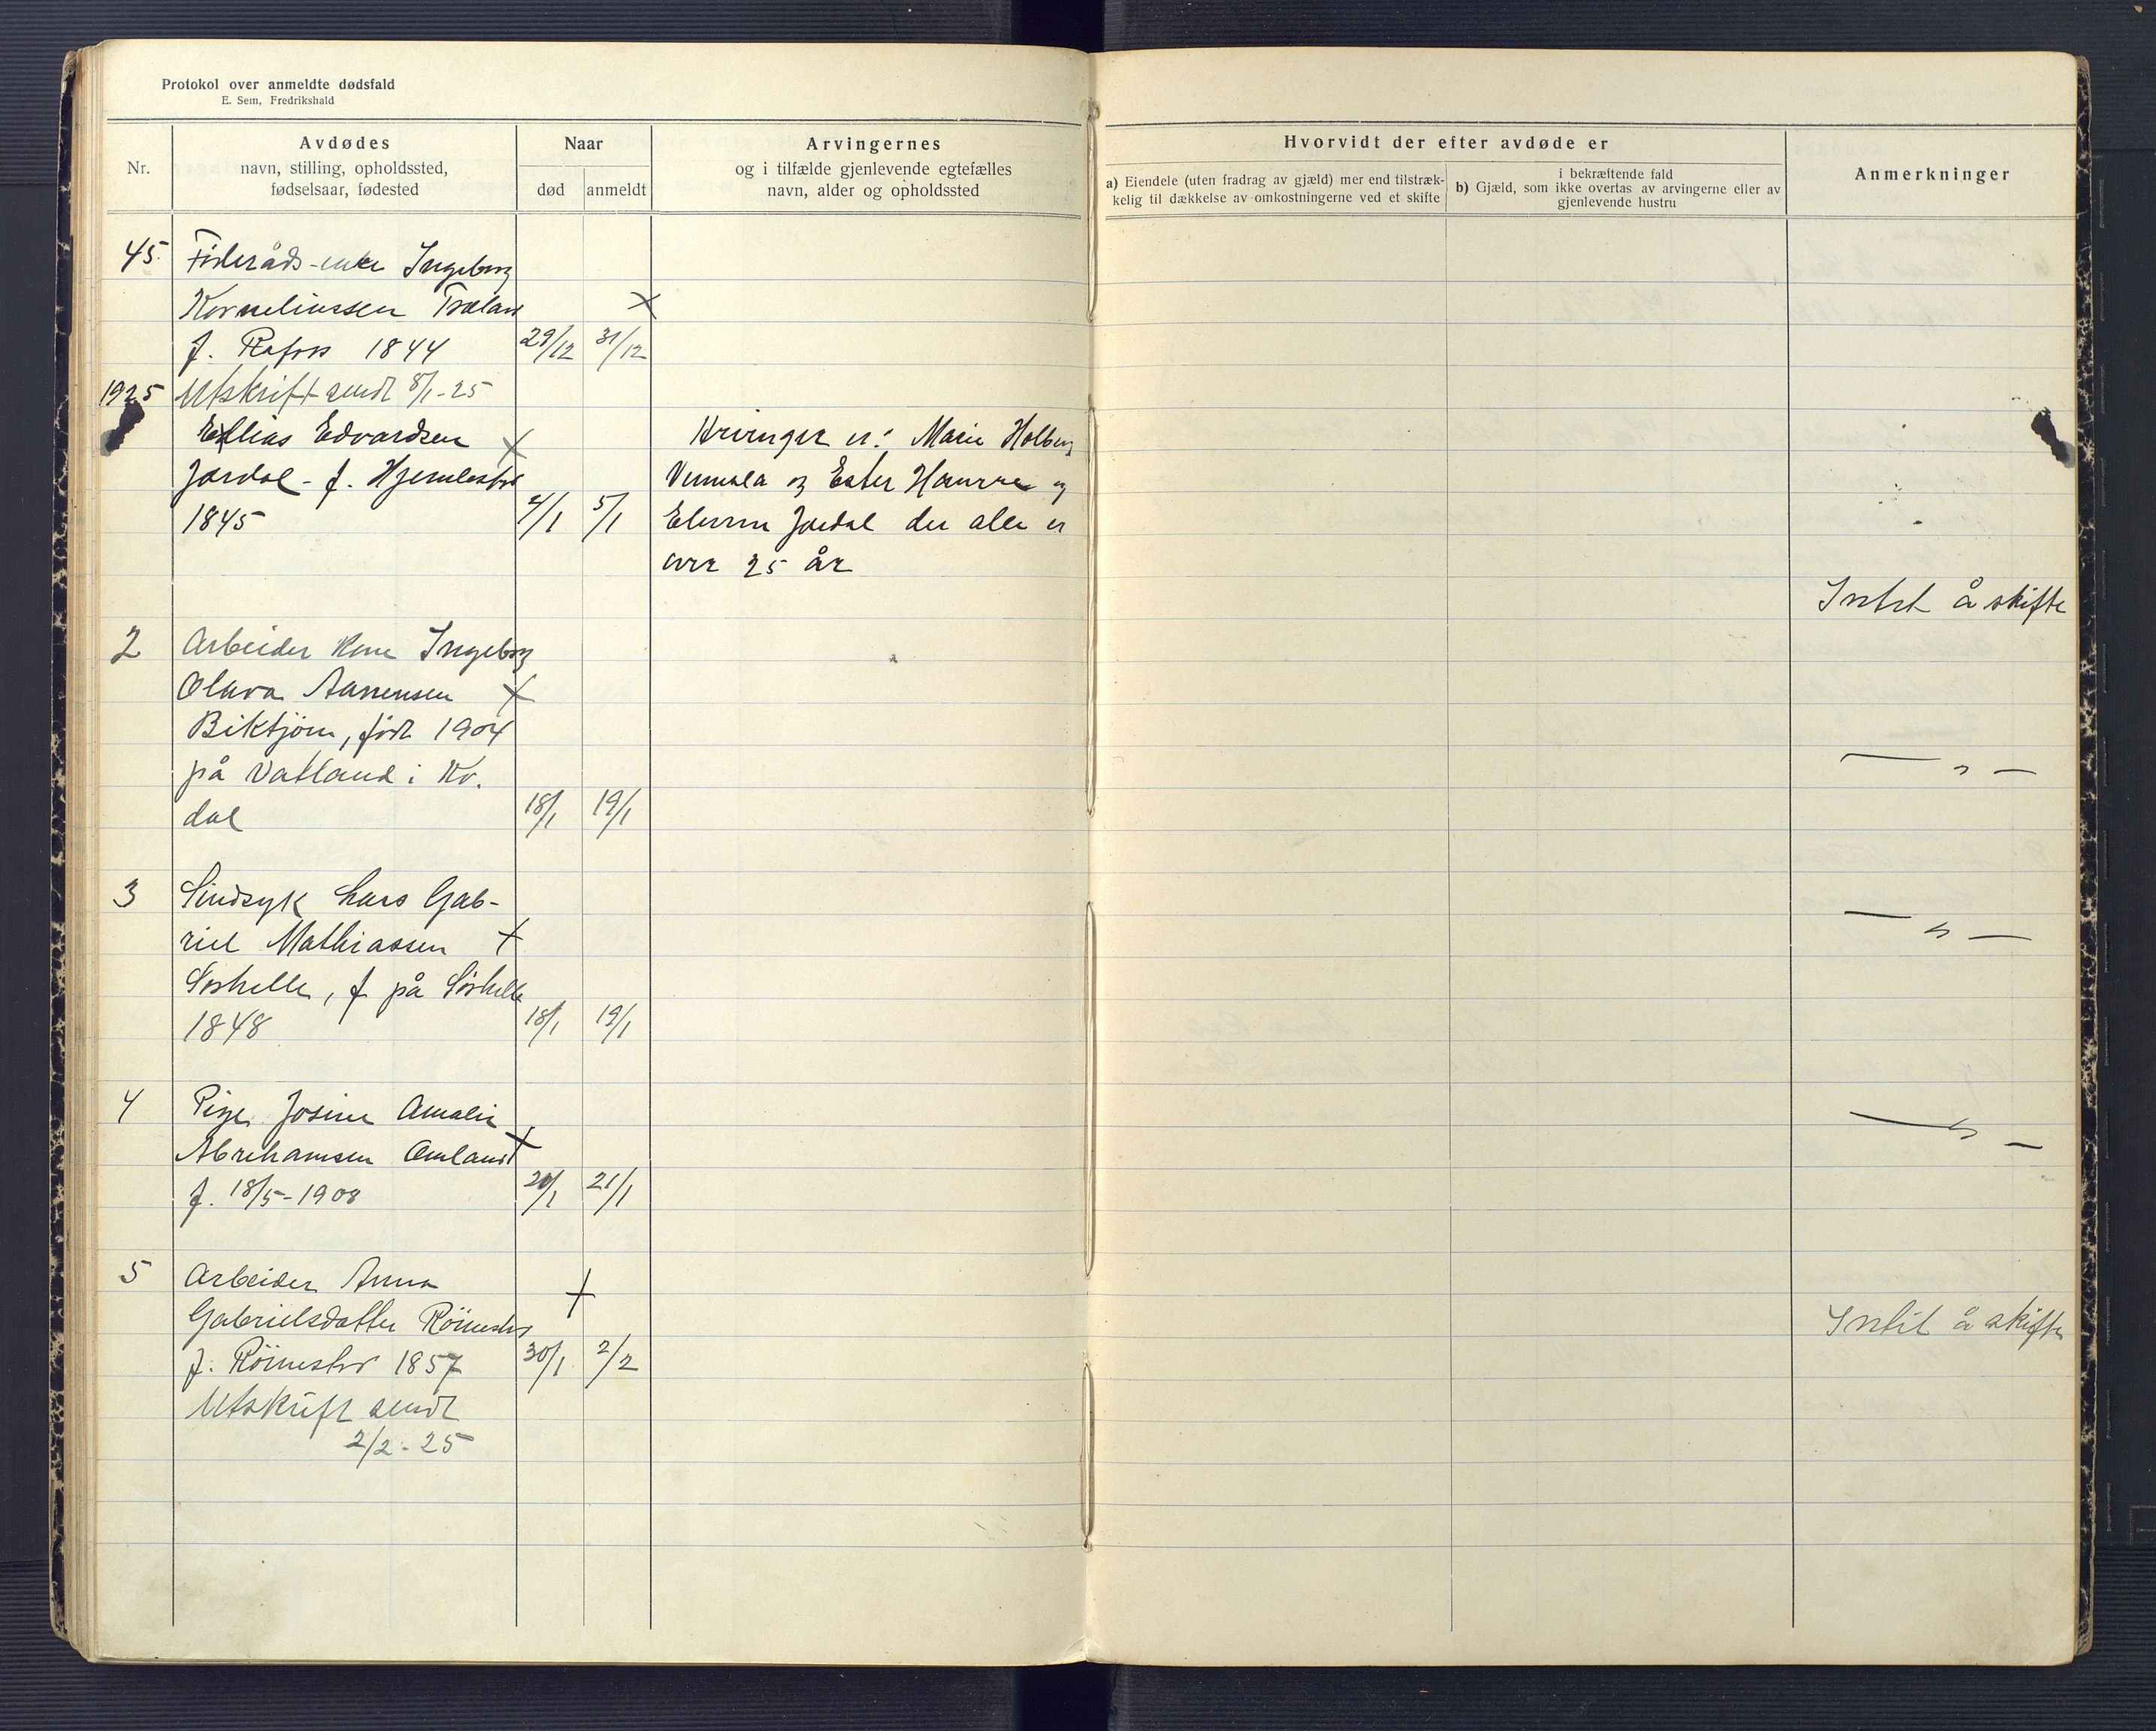 Protokol over anmeldte dødsfald
E. Sem, Fredrikshald
Nr.
Avdødes
navn, stilling, opholdssted,
fødselsaar, fødested
Naar
død
anmeldt
Arvingernes
og i tilfælde gjenlevende egtefælles
navn, alder og opholdssted
Hvorvidt der efter avdøde er
a) Eiendele (uten fradrag av gjæld) mer end tilstræk-
kelig til dækkelse av omkostningerne ved et skifte
i bekræftende fald
b) Gjæld, som ikke overtas av arvingerne eller av
gjenlevende hustru
Anmerkninger
45. Føderåds-enke Ingeborg
Korneliussen Træland
f. Rafoss 1844 29/12 31/12
1925 Utskrift sendt 8/1-25
Elias Edvardsen
Jørdal - f. Hjemlestø
1845 4/1 5/1
Arvinger er: Marie Holberg
Vennesla og Ester Haurre og
Jørdal der alle er
over 25 år
Intet å skifte
2 Arbeider kone Ingeborg
Olava Aanensen
Biktjøn, født 1904
på Vatland i Kv.
dal 18/1 19/1
— " —
3 Sindsyk Lars Gab-
riel Mathiassen
Sørhelle, f på Sørhelle
1848 18/1 19/1
— " —
4 Pige Josine Amalie
Abrehamsen Omland
f. 18/5-1908 20/1 21/1
— " —
5 Arbeider Anna
Gabrielsdatter Röinestø
f. Röinestø 1857 30/1 2/2
Intet å skifte
Utskrift sendt
2/2-25